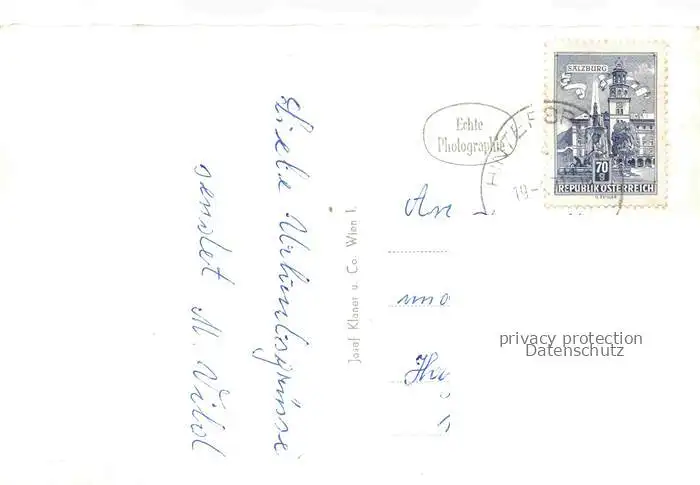 Liebe Urlaubsgrüsse
sendet M. Vitol
Josef Klaner u. Co. Wien I.
Echte
Photographie
SALZBURG
70 g
REPUBLIK ÖSTERREICH
HINTE
19
An
und
privacy protection
Datenschutz